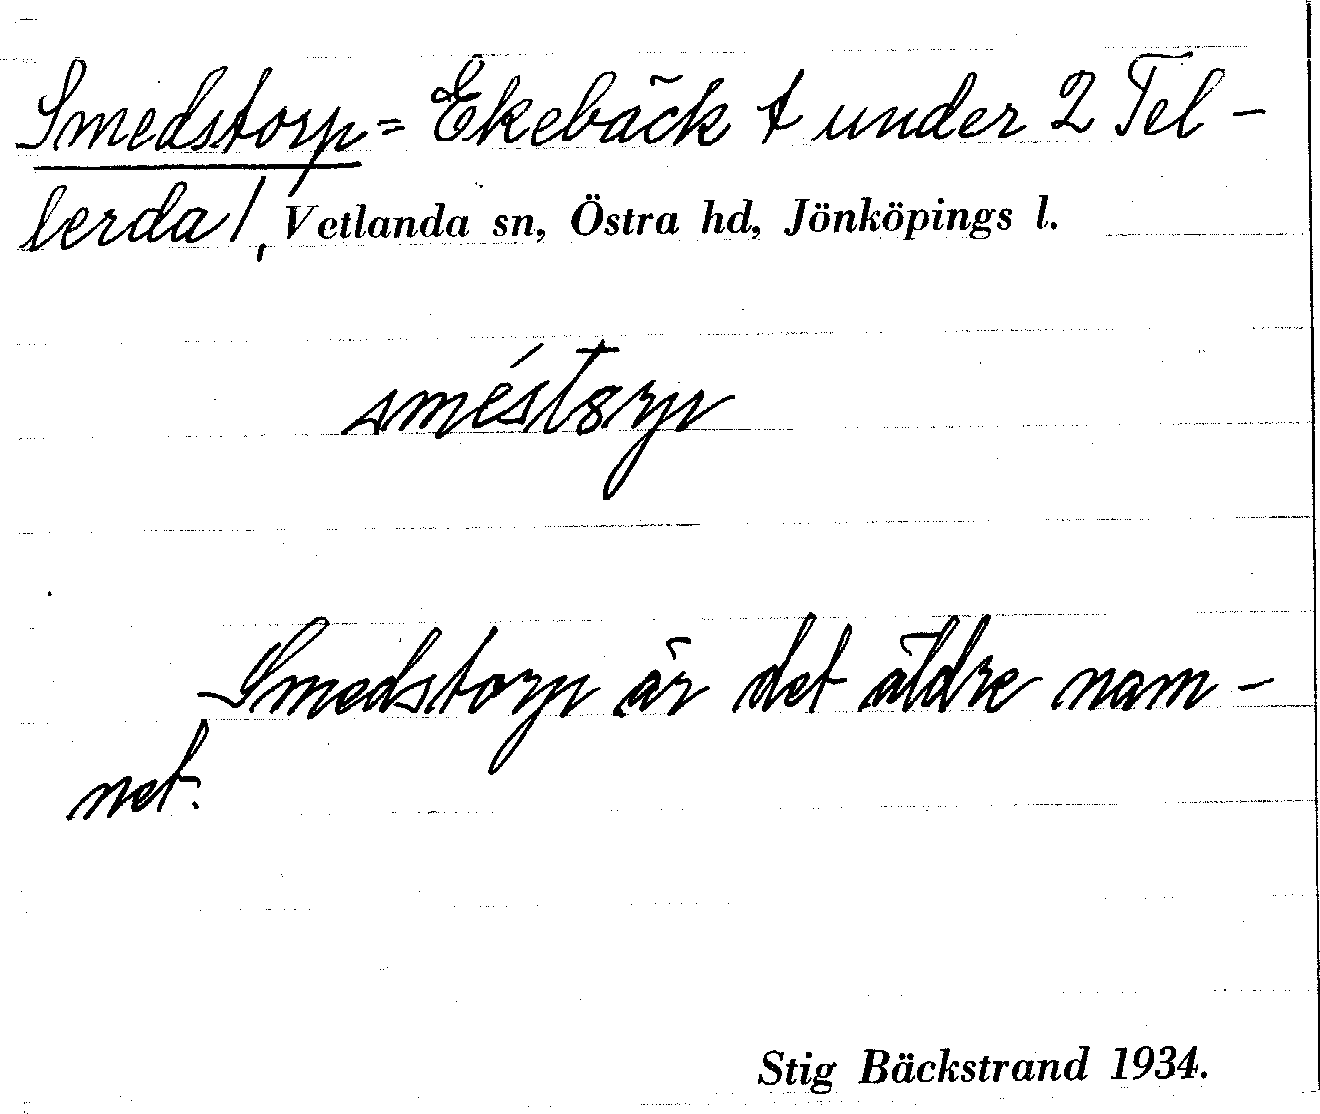 Smedstorp = Ekebäck t under 2 Tel-
lerda!, Vetlanda sn, Östra hd, Jönköpings l.
sméstorp
Smedstorp är det äldre nam-
net.
Stig Bäckstrand 1934.